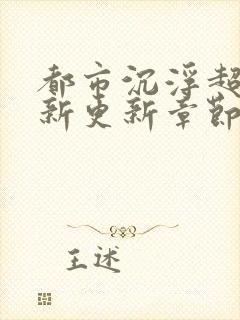 都市沉浮超
新更新章节
王述